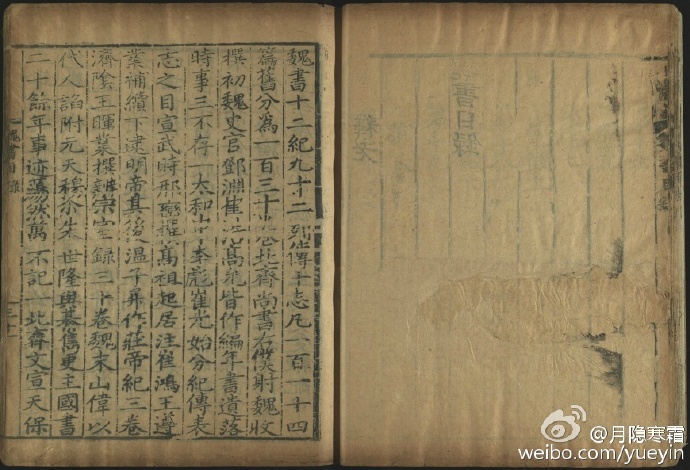 魏書十二紀九十二列傳十志凡一百一十四
篇舊分為一百三十卷北齊尚書右僕射魏收
撰初魏史官鄧淵崔浩高允皆作編年書遺落
時事三不存一太和中李彪崔光始分紀傳表
志之目宣武時邢巒撰高祖起居注崔鴻王遵
業補續下逮明帝其後温子昇作莊帝紀三卷
濟陰王暉業撰辨宗室録三十卷魏末山偉以
代人諂附元天穆尒朱世隆與綦儁更主國書
二十餘年事迹蕩然萬不記一北齊文宣天保
魏書目録
書目録
@月隐寒霜
weibo.com/yueyin